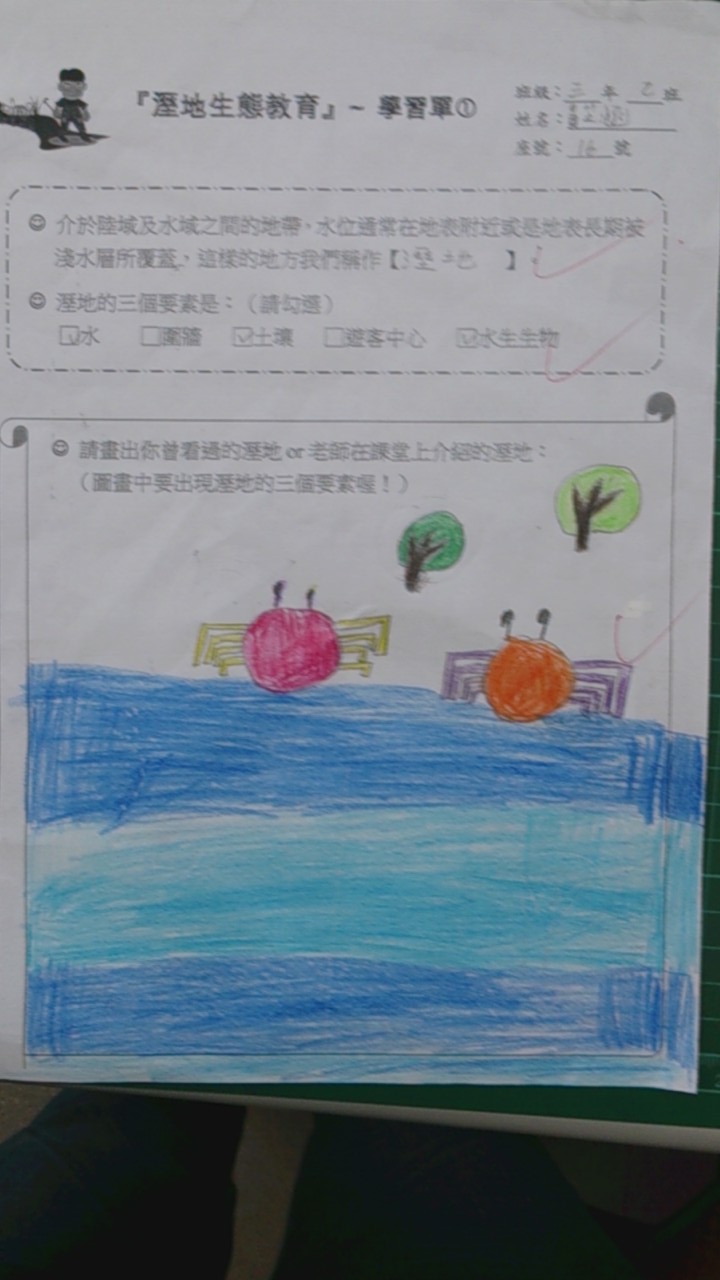 『溼地生態教育』~ 學習單①
班級：三 年 乙 班
姓名：
座號：16 號
介於陸域及水域之間的地帶，水位通常在地表附近或是地表長期被
淺水層所覆蓋，這樣的地方我們稱作【溼地 】
溼地的三個要素是：（請勾選）
☑水 □圍牆 ☑土壤 □遊客中心 ☑水生生物
請畫出你曾看過的溼地 or 老師在課堂上介紹的溼地：
（圖畫中要出現溼地的三個要素喔！）